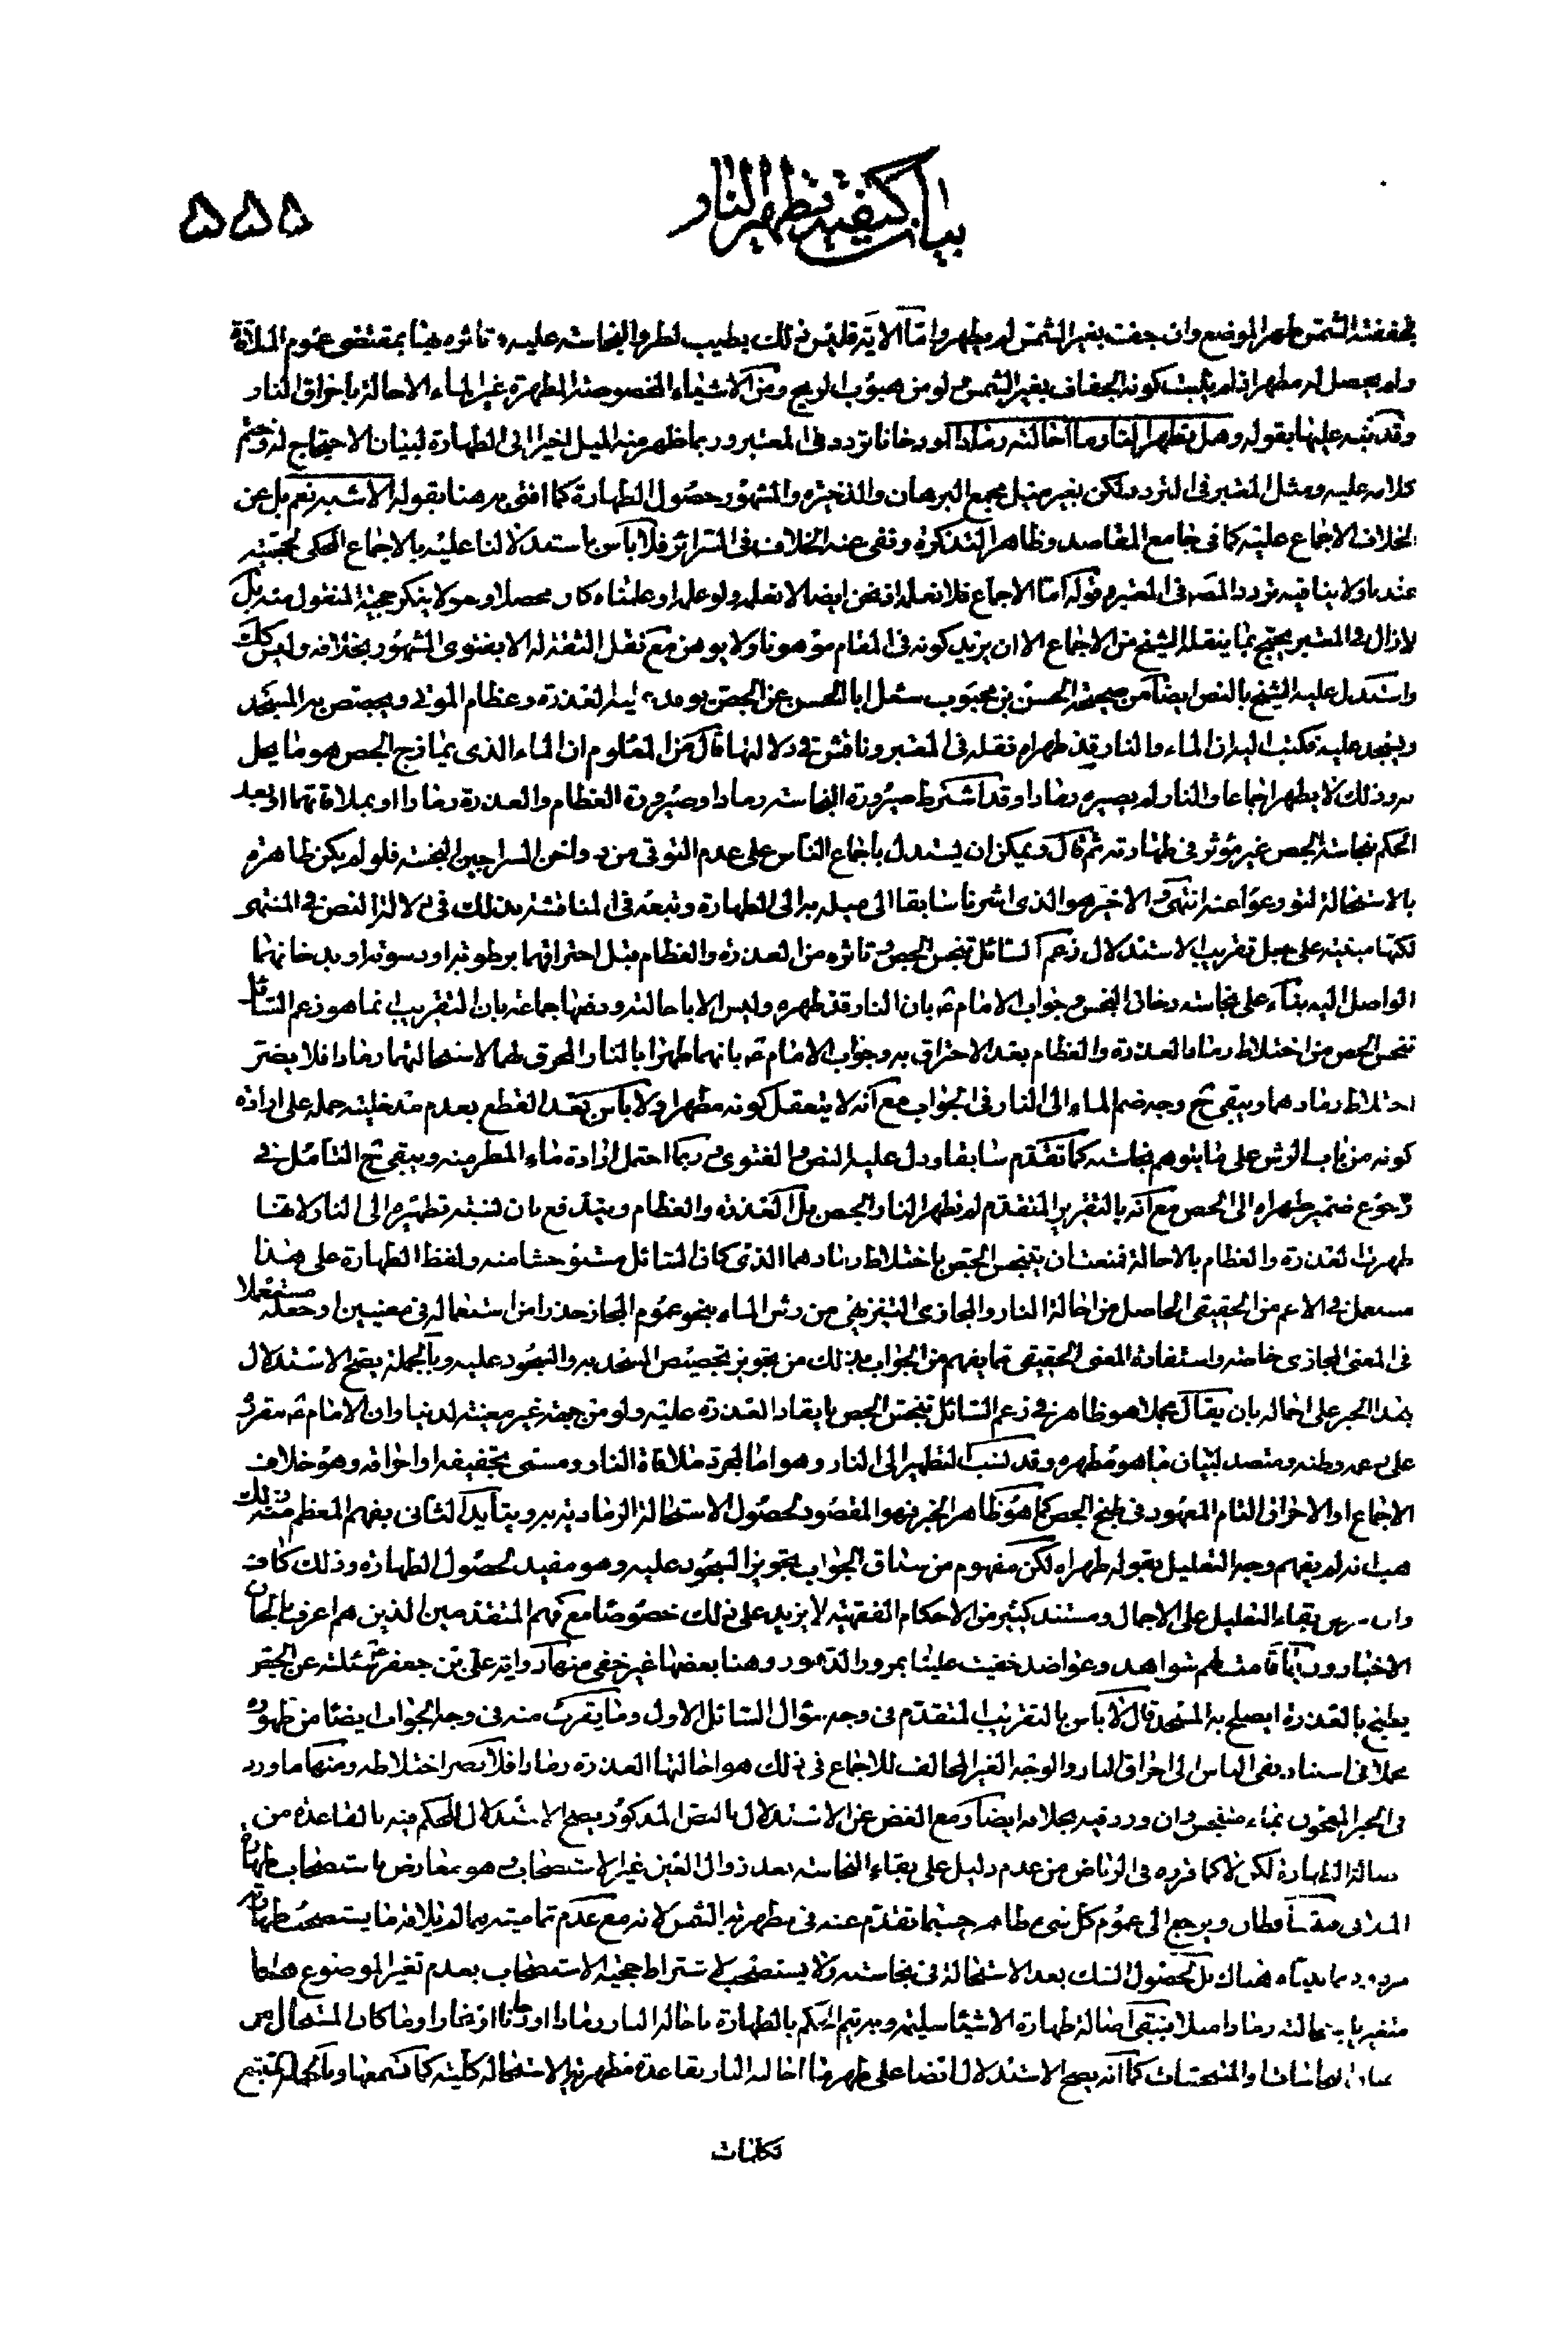 بيان كيفية تطهير النار
۵۵۵
جففته الشمس طهر الموضع وان جفت بغير الشمس لم يطهر واما الاية فليس ذلك بطيب لطرو النجاسة عليه وتاثره بها بمقتضى عموم الملاقاة
ولم يحصل له مطهر اذ لم يثبت كونه الجفاف بغير الشمس ولو من هبوب الريح ومن الاشياء المخصوصة المطهرة غير الماء الاحالة باحراق النار
وقد نبه عليها بقوله وهل يطهر النار ما احالته رمادا او دخانا تردد في المعتبر وربما ظهر منه الميل اخيرا الى الطهارة لبيان الاحتياج له وختم
كلامه عليه ومثل المعتبر في التردد لكن بغير ميل مجمع البرهان والذخيرة والمشهور حصول الطهارة كما افتى به هنا بقوله الاشبه نعم بل عن
الخلاف الاجماع عليه كما في جامع المقاصد وظاهر التذكرة ونفى عنه الخلاف في السرائر فلا باس باستدلالنا عليه بالاجماع المحكى لحجيته
عندنا ولا ينافيه تردد المصـ في المعتبر وقوله اما الاجماع فلا نعلمه اذ نحن ايضا لا نعلمه ولو علمه او علمناه كان محصلا وهو لا ينكر حجية المنقول منه بل
لا زال في المعتبر يحتج بما ينقله الشيخ من الاجماع الا ان يريد كونه في المقام موهونا ولا يوهن مع نقل الثقة له الا بفتوى المشهور بخلافه وليس كك
واستدل عليه الشيخ بالنص ايضا من صحيحة الحسن بن محبوب سئل ابا الحسن عن الجص يوقد عليه العذرة وعظام الموتى ويجصص به المسجد
ويسجد عليه فكتب اليه ان الماء والنار قد طهراه نقله في المعتبر وناقش في دلالتها قال من المعلوم ان الماء الذي يمازج الجص هو ما يحل
به وذلك لا يطهر اجماعا والنار لم يصيره رمادا وقد اشترط صيرورة النجاسة رمادا وصيرورة العظام والعذرة رمادا او بملاقاتهما له بعد
الحكم بنجاسة الجص غير مؤثر في طهارته ثم قال ويمكن ان يستدل باجماع الناس على عدم التوقى من دواخن السراجين النجسة فلو لم يكن طاهرة
بالاستحالة لتورعوا عنه انتهى والاخير هو الذي اشرنا سابقا الى ميله به الى الطهارة وتبعه في المناقشة بذلك في دلالة النص في المنتهى
لكنها مبنية على جعل تقريب الاستدلال زعم السائل تنجس الجص وتاثره من العذرة والعظام قبل احتراقهما برطوبة او دسومة او بدخانهما
الواصل اليه بناء على نجاسة دخان النجس وجواب الامام ع بان النار قد طهره وليس الا باحالته ودفعها جماعة بان التقريب انما هو زعم السائل
تنجس الجص من اختلاط رماد العذرة والعظام بعد الاحتراق به وجواب الامام ع بانهما طهرا بالنار المحرق لهما لاستحالتهما رمادا فلا يضر
اختلاط رمادهما ويبقى ح وجه ضم الماء الى النار في الجواب مع انه لا يتعقل كونه مطهرا ولا باس بعد القطع بعدم مدخليته حمله على ارادة
كونه من باب الرش على ما يتوهم نجاسته كما تقدم سابقا ودل عليه النص والفتوى وربما احتمل ارادة ماء المطر منه ويبقى ح التامل في
رجوع ضمير طهراه الى الجص مع انه بالتقرير المتقدم لم تطهر النار الجص بل العذرة والعظام ويندفع بان نسبة تطهيره الى النار لانها
طهرت العذرة والعظام بالاحالة فمنعت ان يتنجس الجص باختلاط رمادهما الذي كان السائل مستوحشا منه ولفظ الطهارة على هذا
مستعمل في الاعم من الحقيقي الحاصل من احالة النار والمجازي التنزيهي من رش الماء بنحو عموم المجاز حذرا من استعماله في معنيين او جعله مستعملا
في المعنى المجازي خاصة واستفادة المعنى الحقيقي مما يفهم من الجواب بذلك من تجويز تجصيص المسجد به والسجود عليه وبالجملة يصح الاستدلال
بهذا الخبر على اجماله بان يقال مجملا هو ظاهر في زعم السائل تنجس الجص بايقاد العذرة عليه ولو من جهة غير معينة لدينا وان الامام ع مقرره
على معروضه ومتصد لبيان ما هو مطهره وقد نسب التطهير الى النار وهو اما لمجرد ملاقاة النار ومسمى تجفيفه او احراقه وهو خلاف
الاجماع او الاحراق التام المعهود في طبخ الجص كما هو ظاهر الخبر فهو المقصود لحصول الاستحالة الرمادية به ويتايد الثاني بفهم المعظم منه ذلك
هب انه لم يفهم وجه التعليل بقوله طهراه لكن مفهوم من سياق الجواب تجويز السجود عليه وهو مفيد لحصول الطهارة وذلك كاف
وان بقاء التعليل على الاجمال ومستند كثير من الاحكام الفقهية لا يزيد على ذلك خصوصا مع فهم المتقدمين الذين هم اعرف بالحان
الاخبار وربما قامت لهم شواهد وعواضد خفيت علينا بمرور الدهور وهنا بعضها غير خفى منها رواية على بن جعفر سئلته عن الجص
يطبخ بالعذرة ايصلح به المسجد قال لا باس بالتقريب المتقدم في وجه سؤال السائل الاول وما يقرب منه في وجه الجواب ايضا من ظهوره
مجملا في اسناد نفى الباس الى احراق النار والوجه الغير المخالف للاجماع في ذلك هو احالتها العذرة رمادا فلا يضر اختلاطه ومنها ما ورد
في الخبز المعجون بماء متنجس وان ورد فيه بخلافه ايضا ومع الغض عن الاستدلال بالنص المذكور يصح الاستدلال للحكم فيه بالقاعدة من
اصالة الطهارة لكن لا كما قرره في الرياض من عدم دليل على بقاء النجاسة بعد زوال العين غير الاستصحاب وهو معارض باستصحاب طهارة
الملاقى فيتساقطان ويرجع الى عموم كل شيء طاهر حسبما تقدم عنه في مطهرية الشمس لانه مع عدم تماميته فيما لم يلاقه ما يستصحب طهارته
مردود بما بيناه هناك بل لحصول الشك بعد الاستحالة في نجاسته ولا يستصحب لاشتراط حجية الاستصحاب بعدم تغير الموضوع وهنا
متغير باستحالته رمادا مثلا فتبقى اصالة طهارة الاشياء سليمة وبه يتم الحكم بالطهارة باحالة النار رمادا او دخانا او بخارا وما كان المستحال من
النجاسات والمتنجسات كما انه يصح الاستدلال ايضا على طهر ما احالته النار بقاعدة مطهرية الاستحالة كلية كما ستسمعها وبالجملة يتضح
تكلمات